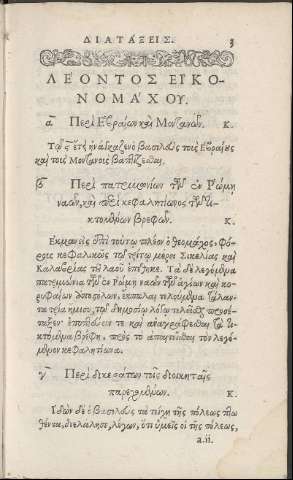 ΔΙΑΤΑΞΕΙΣ. 3
ΛΕΟΝΤΟΣ ΕΙΚΟ-
ΝΟΜΑΧΟΥ.
α Περὶ Ἑβραίων καὶ Μοντανῶν. Κ.
Τῷ ς ἔτει ἠνάγκαζεν ὁ βασιλεὺς τοὺς Ἑβραίους
καὶ τοὺς Μοντανοὺς βαπτίζεσθαι.
β Περὶ πατριμονίων τῶν ἐν Ῥώμῃ
ναῶν, καὶ περὶ κεφαλητίωνος τῶν τι-
κτομένων βρεφῶν. Κ.
Ἐκμανεὶς ἐπὶ τούτῳ πλέον ὁ θεομάχος, φό-
ροις κεφαλικοῖς τῷ τρίτῳ μέρει Σικελίας καὶ
Καλαβρίας τοῦ λαοῦ ἐπέθηκε. Τὰ δὲ λεγόμενα
πατριμώνια τῶν ἐν Ῥώμῃ ναῶν τῶν ἁγίων καὶ κο-
ρυφαίων ἀποστόλων, ἔκπαλαι τελούμενα τάλαν-
τα τρία ἥμισυ, τῷ δημοσίῳ λόγῳ τελεῖσθαι προσέ-
ταξεν· ἐποπτεύειν τε καὶ ἀναγράφεσθαι τὰ τι-
κτόμενα βρέφη, πρὸς τὸ ἀπαιτεῖσθαι τὸν λεγό-
μενον κεφαλητίωνα.
γ Περὶ δικεράτων τοῖς διοικηταῖς
παρεχομένων. Κ.
Ἰδὼν δὲ ὁ βασιλεὺς τὰ τείχη τῆς πόλεως πτω-
θέντα, διελάλησε, λέγων, ὅτι ὑμεῖς οἱ τῆς πόλεως,
a.ii.